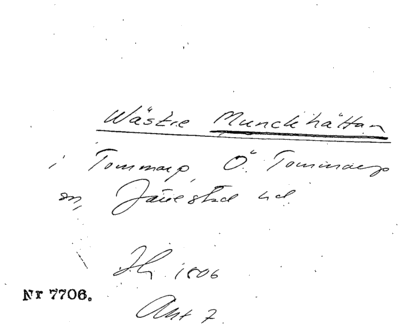 Wästre Munckhättan
i Tommarp, Ö. Tommarps
sn, Järrestad hd
1806
Nr 7706.
Akt 7